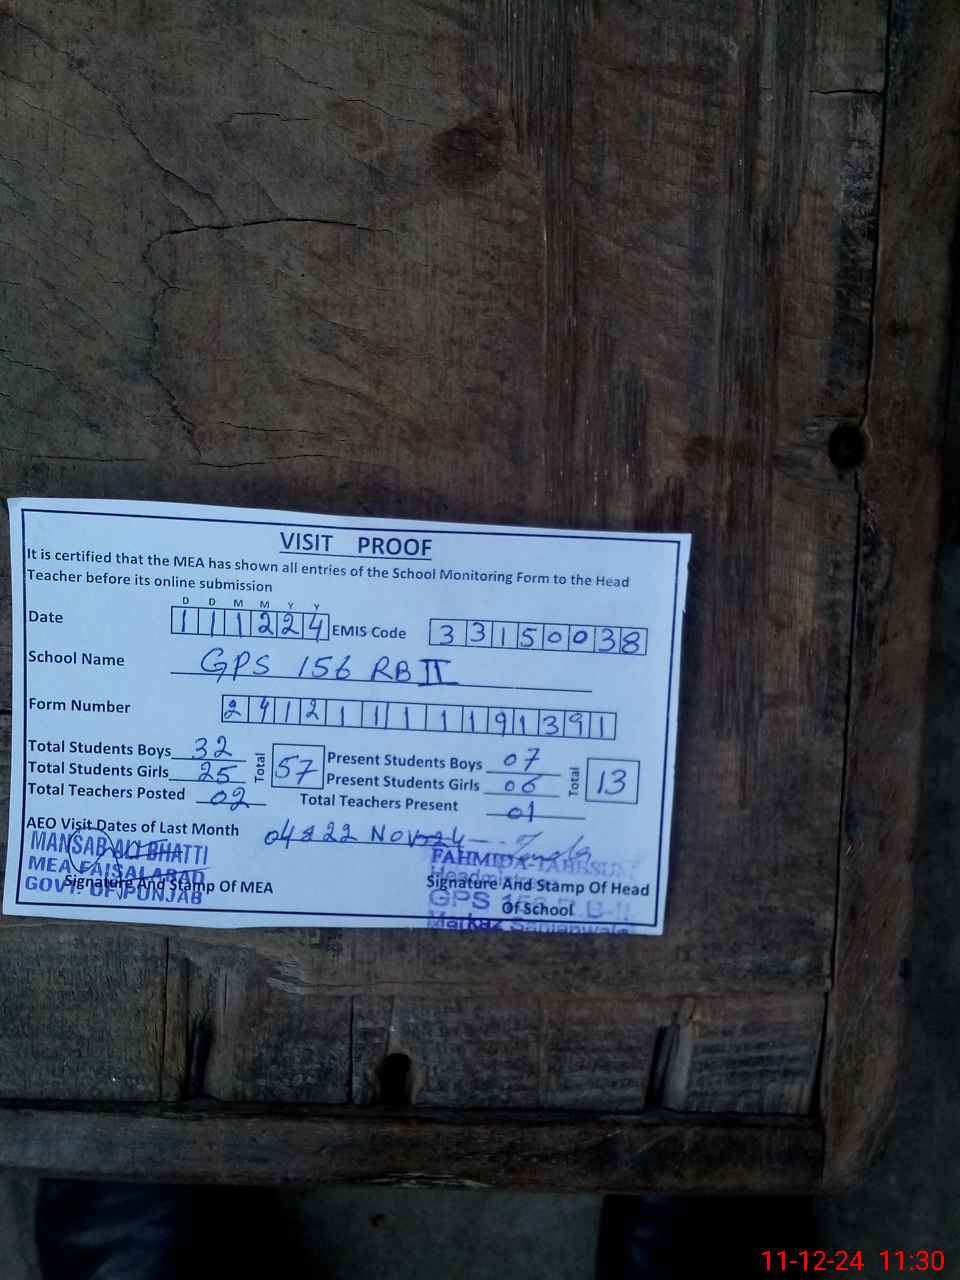 VISIT PROOF
It is certified that the MEA has shown all entries of the School Monitoring Form to the Head
Teacher before its online submission
D D M M Y Y
Date 1 1 1 2 2 4 EMIS Code 3 3 1 5 0 0 3 8
School Name GPS 156 RB II
Form Number 2 4 1 2 1 1 1 1 1 9 1 3 9 1
Total Students Boys 32 Total 57 Present Students Boys 07 Total 13
Total Students Girls 25 Present Students Girls 06
Total Teachers Posted 02 Total Teachers Present 01
AEO Visit Dates of Last Month 04 & 22 Nov 24
MANSAB ALI BHATTI FAHMIDA TABBSUM
MEA FAISALABAD
Signature And Stamp Of MEA Signature And Stamp Of Head
GOVT. OF PUNJAB GPS R.B-II
Of School
Markaz
11-12-24 11:30